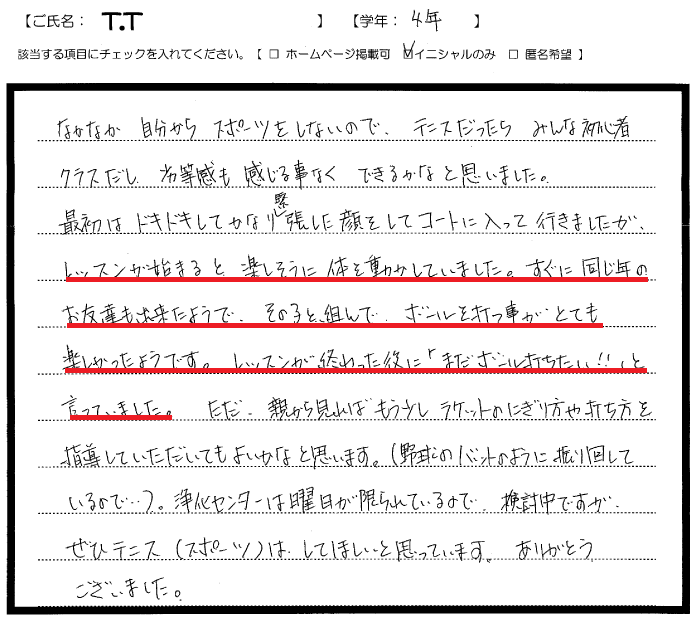 【ご氏名： T.T 】 【学年： 4年 】
該当する項目にチェックを入れてください。【 □ ホームページ掲載可 ☑イニシャルのみ □ 匿名希望 】
なかなか 自分から スポーツをしないので、テニスだったら みんな初心者
クラスだし、劣等感も 感じる事なく できるかなと思いました。
最初は ドキドキしてかなり緊張した顔をしてコートに入って行きましたが、
レッスンが始まると 楽しそうに 体を動かしていました。すぐに 同じ年の
お友達も出来たようで、その子と組んで、ボールを打つ事が とても
楽しかったようです。 レッスンが 終わった後に「まだボール打ちたい!!」と
言っていました。 ただ、親から見れば もう少し ラケットのにぎり方や打ち方を
指導していただいてもよいかなと思います。(野球のバットのように振り回して
いるので…)。浄化センターは曜日が限られているので、検討中ですが、
ぜひテニス(スポーツ)は、してほしいと思っています。ありがとう
ございました。